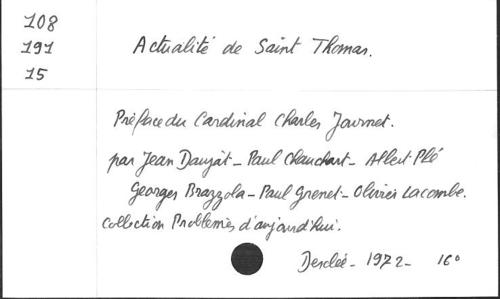 108
191
15
Actualité de Saint Thomas.
Préface du Cardinal Charles Journet.
par Jean Daujat - Paul Chauchard - Albert Plé
Georges Brazzola - Paul Grenet - Olivier Lacombe.
Collection Problèmes d'aujourd'hui.
Desclée - 1972 - 16°